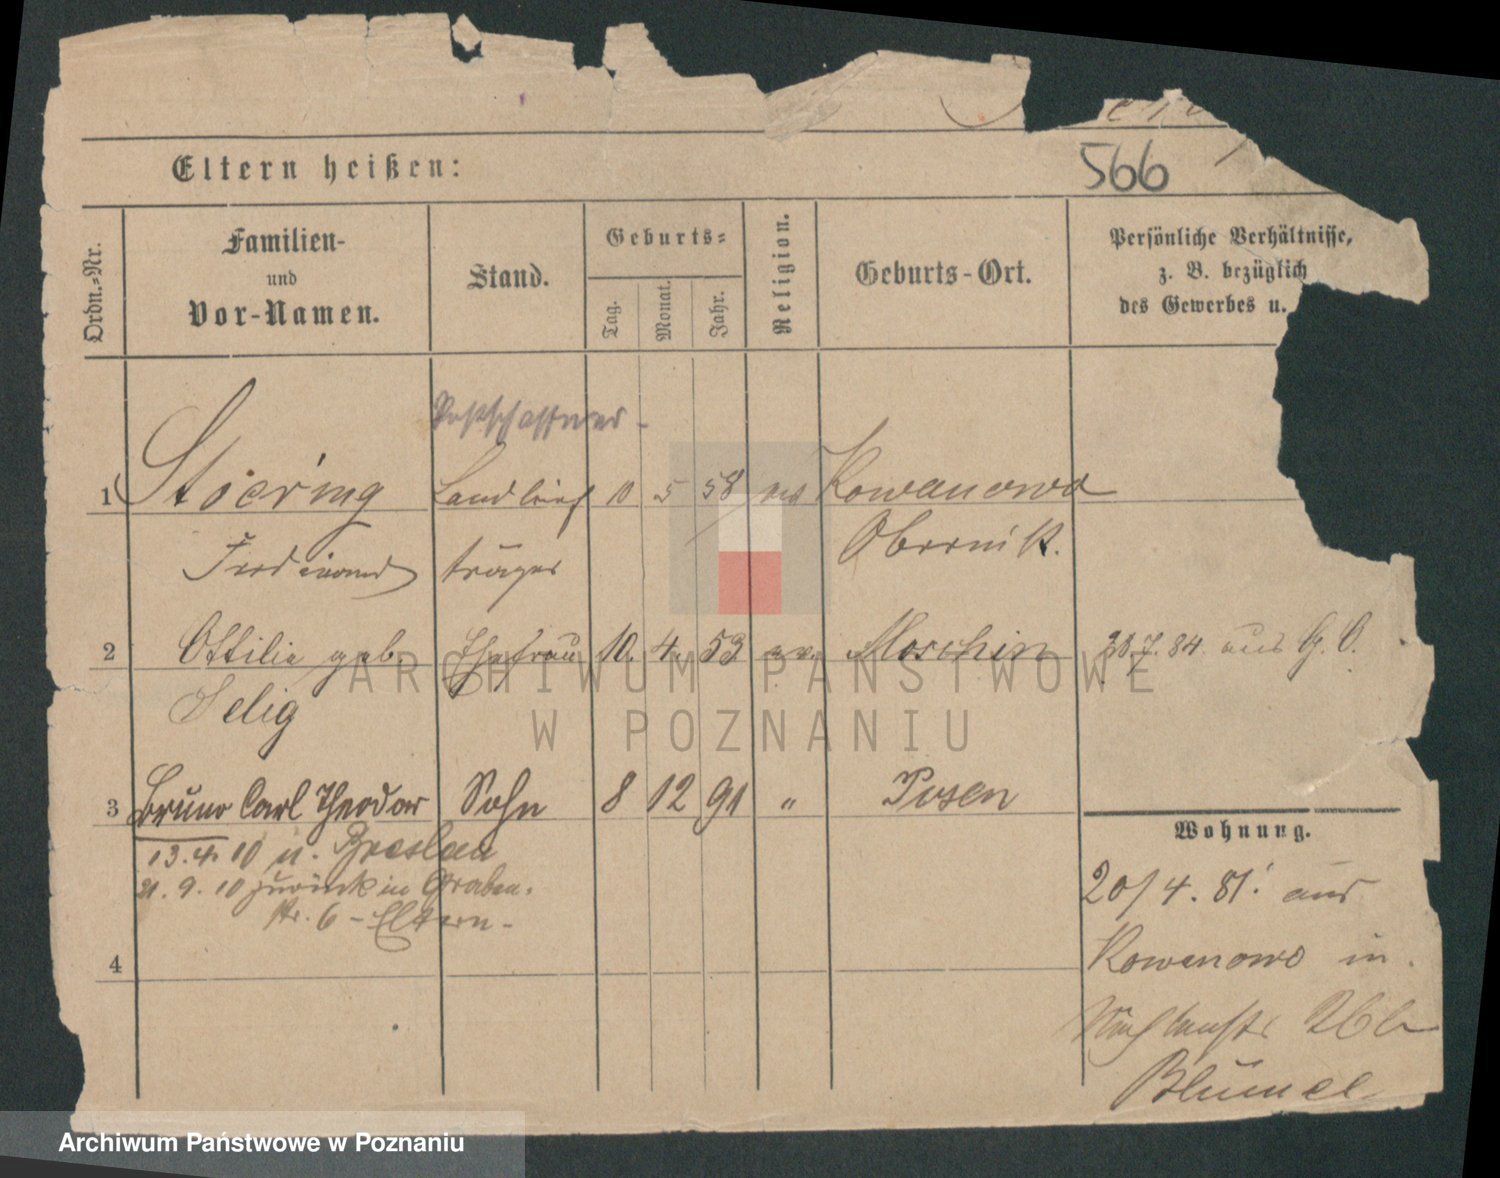 Eltern heißen:
566
Ordn.-Nr.
Familien-
und
Vor-Namen.
Stand.
Geburts-
Tag.
Monat.
Jahr.
Religion.
Geburts-Ort.
Persönliche Verhältnisse,
z. B. bezüglich
des Gewerbes u.
Postschaffner -
1 Stoering Landbrief 10 5 58 ev Kowanowo
Ferdinand träger Obornik.
2 Ottilie geb. Ehefrau 10. 4. 53 ev. Moschin 28.7.84. aus G. O.
Selig
3 Bruno Carl Theodor Sohn 8 12 91 " Posen
13.4.10 n. Breslau
21.9.10 zurück in Graben-
str. 6 - Eltern -
4
Wohnung.
20/4.81. aus
Kowanowo in
26b
Blümel
ARCHIWUM PAŃSTWOWE
W POZNANIU
Archiwum Państwowe w Poznaniu